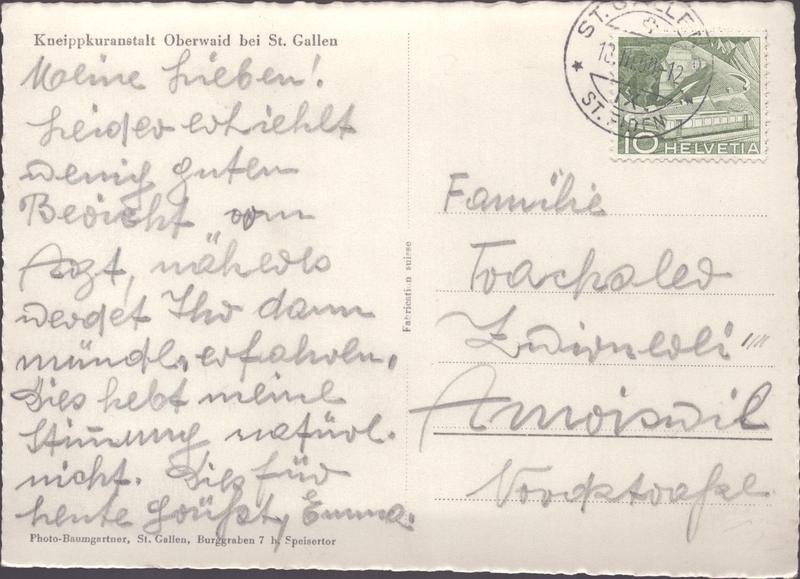 Kneippkuranstalt Oberwaid bei St. Gallen
Meine Lieben!
Leider erhiehlt
wenig guten
Bericht vom
Arzt, näheres
werdet Ihr dann
mündl. erfahren.
Dies hebt meine
Stimmung natürl.
nicht. Dies für
heute Grüsst, Emma.
Photo-Baumgartner, St. Gallen, Burggraben 7 b. Speisertor
Fabrication suisse
ST. GALLEN
ST. FIDEN
10 HELVETIA
Familie
Trachsler
Zwirnerli
Amriswil
Nordstrasse